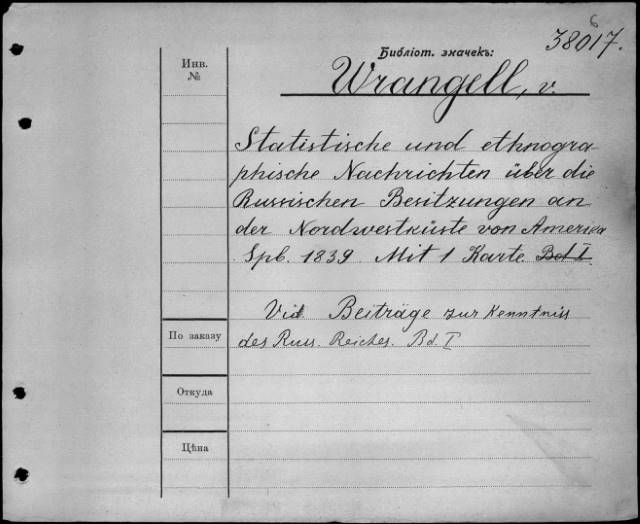 6
38017.
Библіот. значекъ:
Инв.
№
Wrangell, v.
Statistische und ethnogra-
phische Nachrichten über die
Russischen Besitzungen an
der Nordwestküste von Amerika
Spb. 1839. Mit 1 Karte. Bd I.
Vid Beiträge zur Kenntniss
des Russ. Reiches. Bd. I
По заказу
Откуда
Цѣна